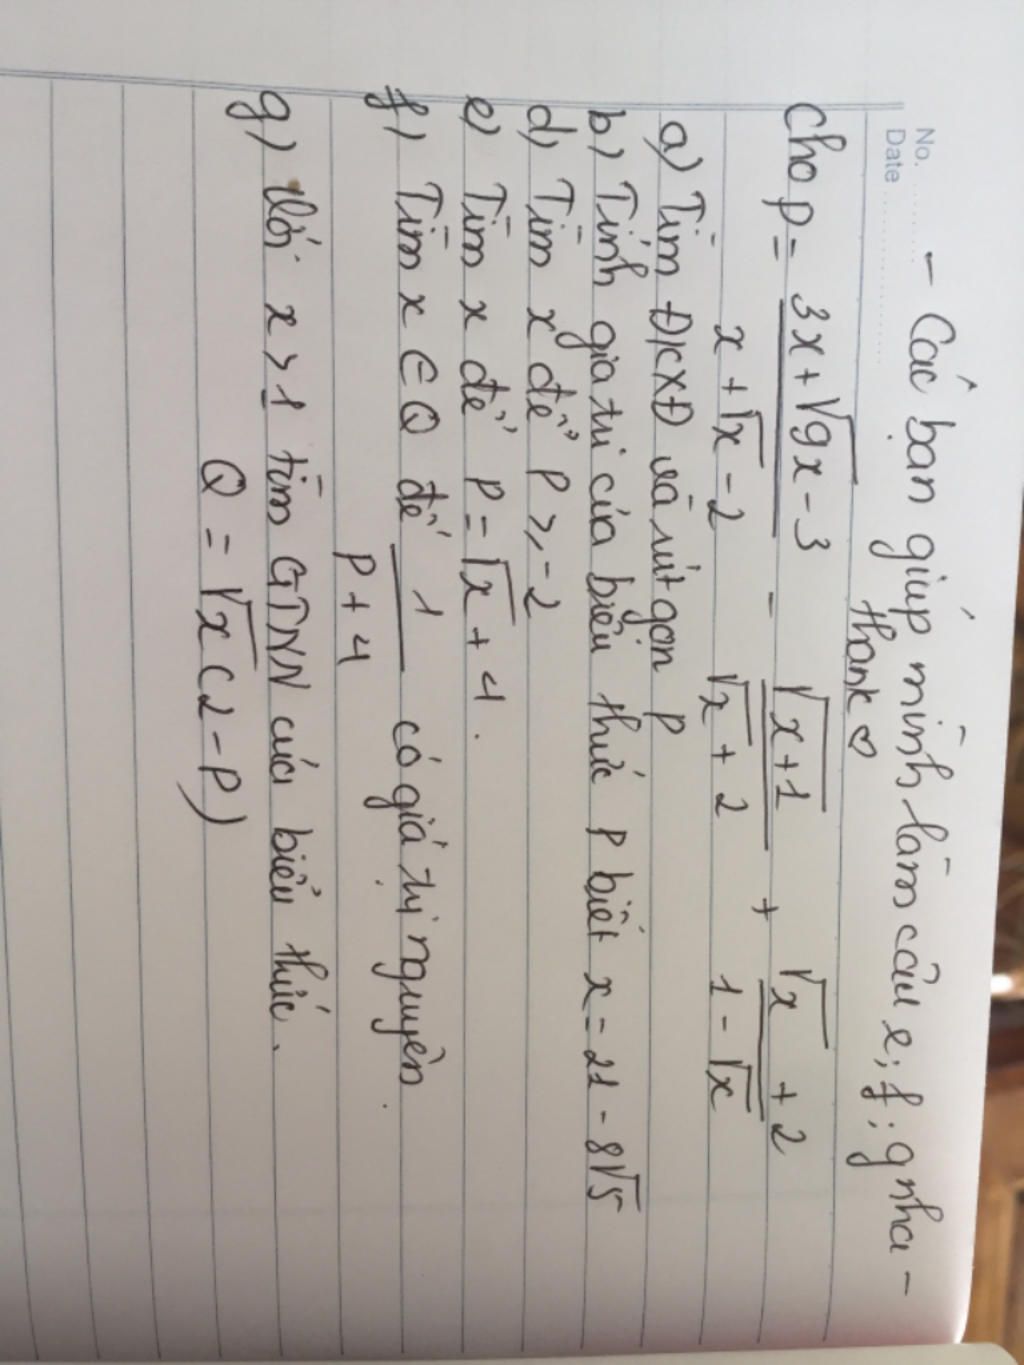 No. ........
Date ................
- Các bạn giúp mình làm câu e; f; g nha -
thank ♡
Cho P = 3x + √9x - 3 / x + √x - 2 - √x+1 / √x + 2 + √x + 2 / 1 - √x
a) Tìm ĐKXĐ và rút gọn P
b) Tính giá trị của biểu thức P biết x = 21 - 8√5
d) Tìm x để P ≥ -2
e) Tìm x để P = √x + 4.
f) Tìm x ∈ Q để 1 / P + 4 có giá trị nguyên.
g) Với x > 1 tìm GTNN của biểu thức.
Q = √x (2 - P)